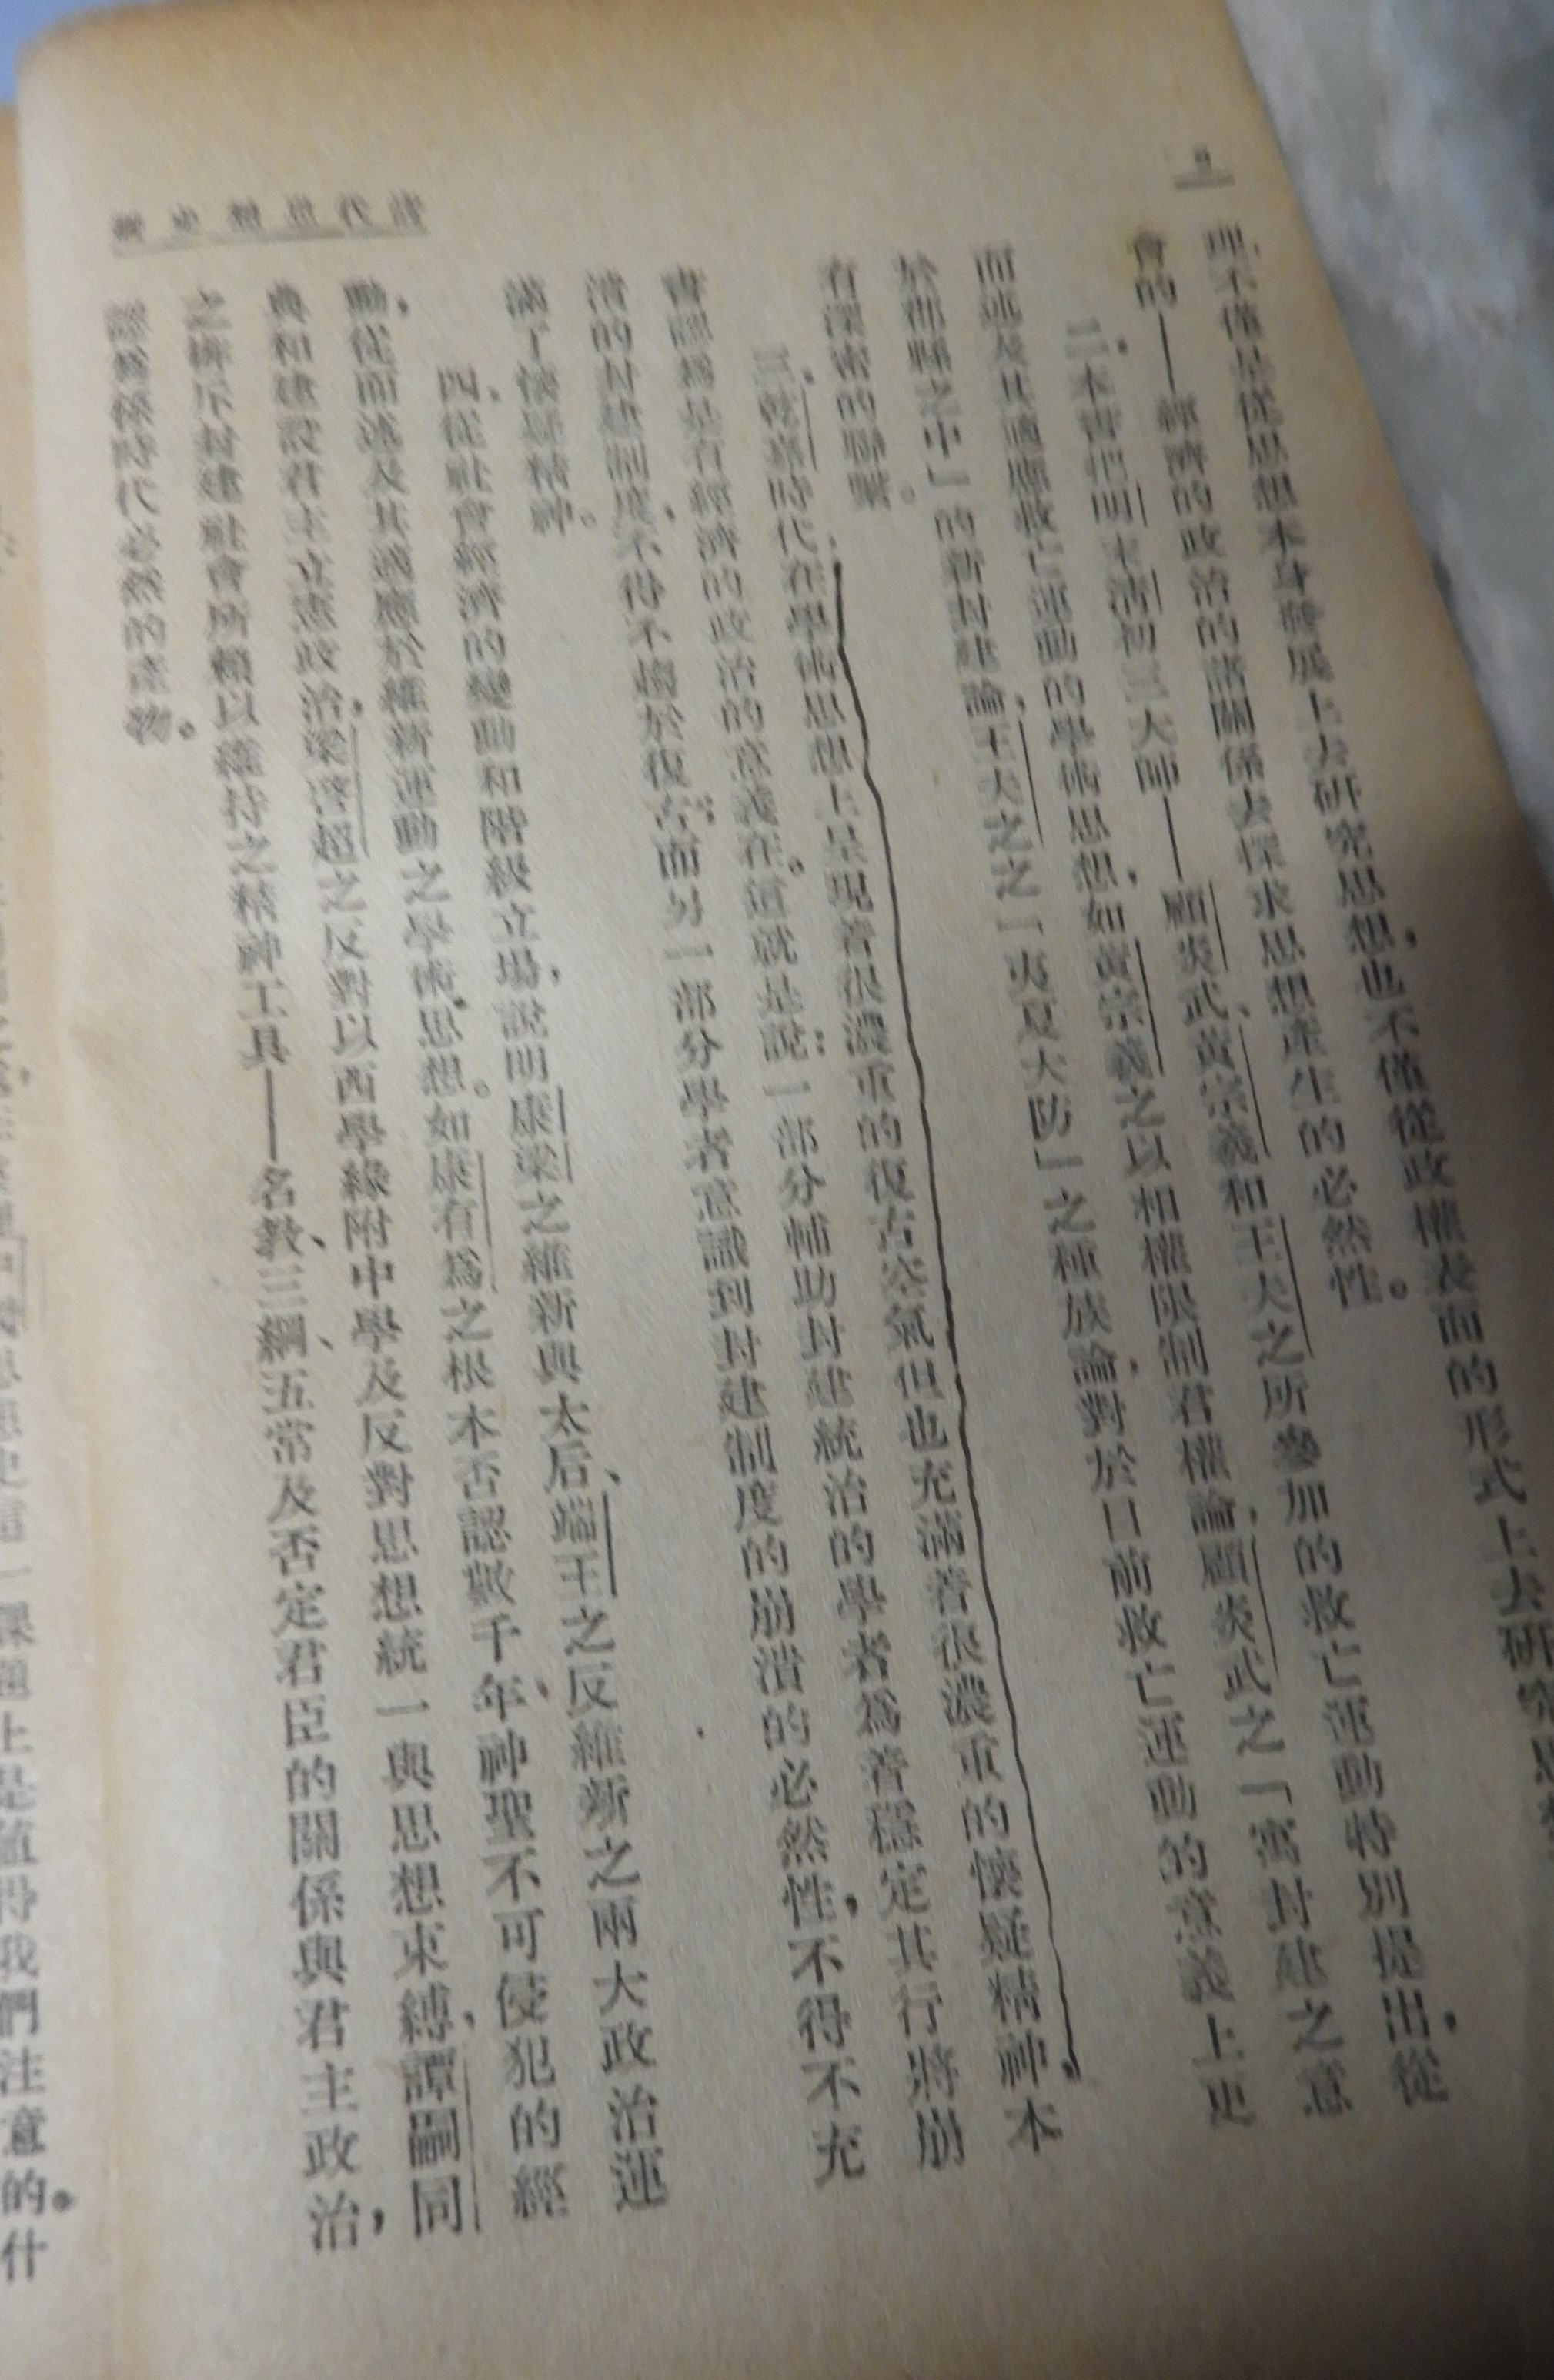 清代思想史綱
理，不僅是從思想本身發展上去研究思想，也不僅從政權表面的形式上去研究思
會的——經濟的政治的諸關係去探求思想產生的必然性。
二、本書把明末清初三大師——顧炎武、黃宗羲和王夫之所參加的救亡運動特別提出，從
而述及其適應救亡運動的學術思想，如黃宗羲之以相權限制君權論，顧炎武之「寓封建之意
於郡縣之中」的新封建論，王夫之之「夷夏大防」之種族論，對於目前救亡運動的意義上更
有深密的聯繫。
三、乾嘉時代，在學術思想上呈現著很濃重的復古空氣但也充滿著很濃重的懷疑精神。本
書認為是有經濟的政治的意義在。這就是說：一部分輔助封建統治的學者為著穩定其行將崩
潰的封建制度，不得不趨於復古；而另一部分學者意識到封建制度的崩潰的必然性，不得不充
滿了懷疑精神。
四、從社會經濟的變動和階級立場，說明康梁之維新與太后、端王之反維新之兩大政治運
動，從而述及其適應於維新運動之學術思想。如康有為之根本否認數千年神聖不可侵犯的經
典和建設君主立憲政治，梁啓超之反對以西學緣附中學及反對思想統一與思想束縛，譚嗣同
之排斥封建社會所賴以維持之精神工具——名教、三綱、五常及否定君臣的關係與君主政治，
認為係時代必然的產物。
課題上是值得我們注意的。什